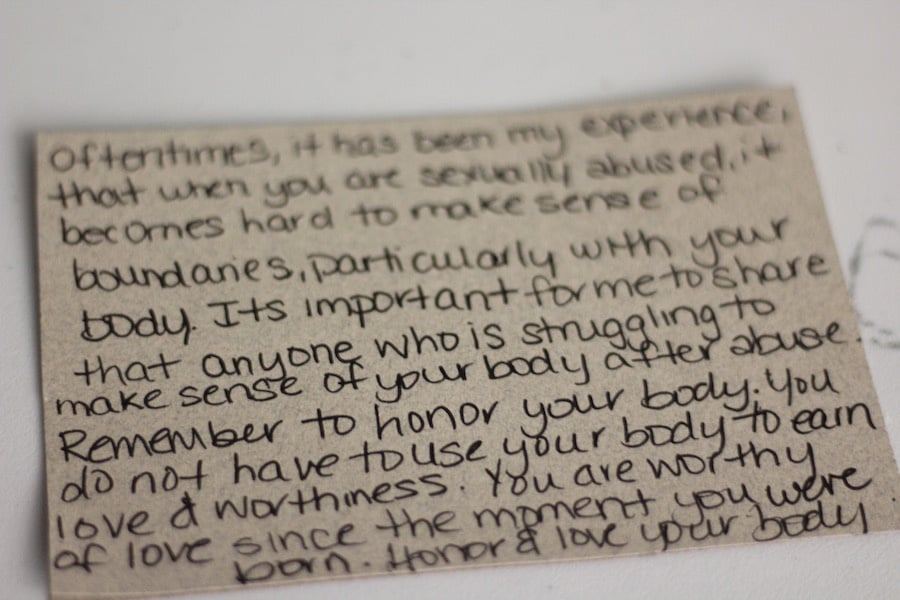 Oftentimes, it has been my experience,
that when you are sexually abused, it
becomes hard to make sense of
boundaries, particularly with your
body. Its important for me to share
that anyone who is struggling to
make sense of your body after abuse.
Remember to honor your body. You
do not have to use your body to earn
love & worthiness. You are worthy
of love since the moment you were
born. Honor & love your body